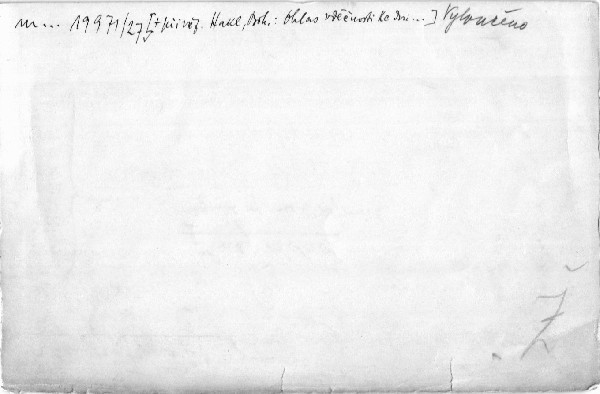 m... 19971/27 [+ přiváz. Hakl, Boh.: Ohlas vděčnosti ke dni...] Vyloučeno
Ž